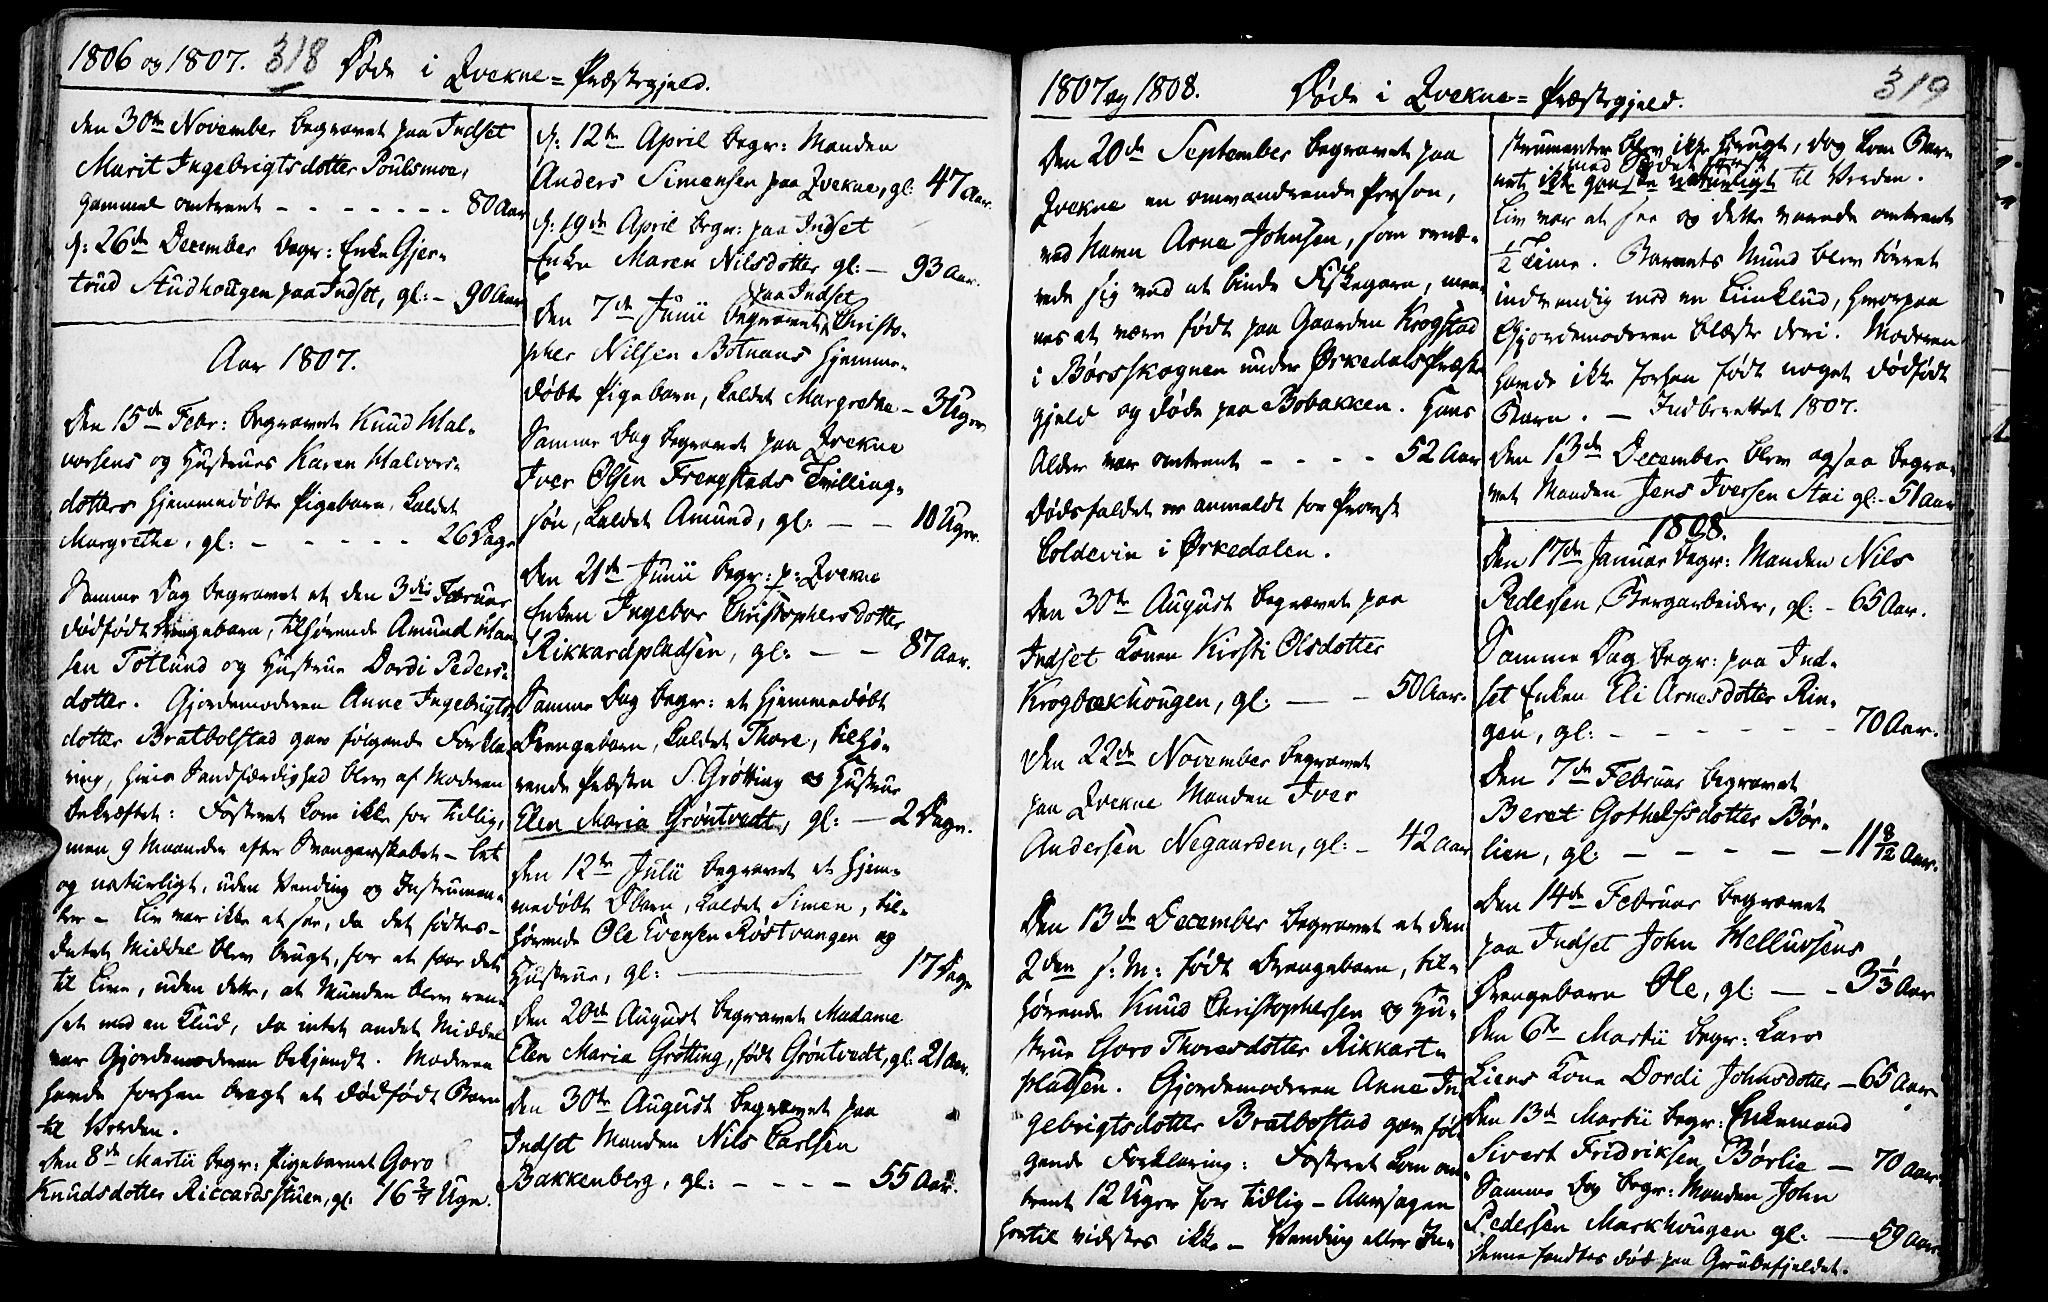 1806 og 1807. 318 Døde i Qvekne=Præstegjeld.
den 30te November begravet paa Indset
Marit Ingebrigtsdotter Poulsmoe,
gammel omtrent - - - - - - - 80 Aar
d: 26de December begr: Enke Gjer-
trud Studhougen paa Indset, gl: - 90 Aar
Aar 1807.
Den 15de Febr: begravet Knud Hal-
vorsens og Hustrues Karen Halvors-
dotters hjemmedøbte Pigebarn, kaldet
Margrethe, gl: - - - - - 26 Dage
Samme Dag begravet et den 3die Februar
dødfødt Drengebarn, tilhørende Amund Han
sen Totlund og Hustrue Dordi Peders-
dotter. Gjordemoderen Anne Ingebrigts-
dotter Bratbolstad gav følgende Forkla-
ring, hvis Sandfærdighed blev af Moderen
bekræftet: Fosteret kom ikke for tidlig,
men 9 Maaneder efter Svangerskabet - let
og naturligt, uden Vending og Instrumen-
ter - Liv var ikke at see, da det fødtes -
Intet Middel blev brugt, for at faae det
til Live, uden dette, at Munden blev ren-
set med en Klud, da intet andet Middel
var Gjordemoderen bekjendt. Moderen
havde forhen bragt et dødfødt Barn
til Verden.
Den 8de Martii begr: Pigebarnet Goro
Knudsdotter Riccardsstuen, gl: 16 3/7 Uge.
d: 12te April begr: Manden
Anders Simensen paa Qvekne, gl: 47 Aar.
d: 19de April begr: paa Indset
Enken Maren Nilsdotter gl: - 93 Aar.
paa Indset
Den 7de Junii begravet Christo-
pher Nilsen Botnans hjemme-
døbte Pigebarn, kaldet Margrethe - 3 Uger
Samme Dag begravet paa Qvekne
Iver Olsen Frengstads Tvilling-
søn, kaldet Amund, gl: - - 10 Uger.
Den 21de Junii begr: p: Qvekne
Enken Ingebor Christophersdotter
Rikkardpladsen, gl: - - 87 Aar.
Samme Dag begr: et hjemmedøbt
Drengebarn, kaldet Thore, tilhø-
rende Præsten S. Grøtting og Hustrue
Elen Maria Grøntvedt, gl: - 2 Dage.
Den 12te Julii begravet et hjem-
medøbt Dbarn, kaldet Simen, til-
hørende Ole Evensen Røstvangen og
Hustrue, gl: - 17 Dage
Den 20de August begravet Madame
Elen Maria Grøtting, født Grøntvedt, gl: 21 Aar.
Den 30te August begravet paa
Indset Manden Nils Carlsen
Bakkenberg, gl: - - - - 55 Aar.
1807 og 1808. Døde i Qvekne=Præstegjeld. 319
Den 20de September begravet paa
Qvekne en omvandrende Person,
ved Navn Arne Johnsen, som ernæ-
rede sig ved at binde Fiskegarn, mee-
nes at være født paa Gaarden Krogstad
i Børsskognen under Ørkedals Præste
gjeld og døde paa Bobakken. Hans
Alder var omtrent - - - - 52 Aar
Dødsfaldet er anmeldt for Provst
Coldevin i Ørkedalen.
Den 30te August begravet paa
Indset Konen Kirsti Olsdotter
Krogbækhougen, gl: - - 50 Aar.
Den 22de November begravet
paa Qvekne Manden Iver
Andersen Negaarden, gl: - 42 Aar
Den 13de December begravet et den
2den s: M: født Drengebarn, til-
hørende Knud Christophersen og Hu-
strue Goro Thoresdotter Rikkart-
pladsen. Gjordemoderen Anne In
gebrigtsdotter Bratbostad gav føl-
gende Forklaring: Fosteret kom om-
trent 12 Uger for tidlig - Aarsagen
hertil vidstes ikke - Vending eller In-
strumenter blev ikke brugt, dog kom Bar-
med Sædet først
net ikke gandske naturligt til Verden.
Liv var at see og dette varede omtrent
1/2 Time. Barnets Mund blev tørret
indvendig med en Liinklud, hvorpaa
Gjordemoderen blæste deri. Moderen
havde ikke forhen født noget dødfødt
Barn. - Indberettet 1807.
Den 13de December blev ogsaa begra-
vet Manden Jens Iversen Stai gl: - 51 Aar
1808.
Den 17de Januar begr: Manden Nils
Pedersen, Bergarbeider, gl: - 65 Aar.
Samme Dag begr: paa Ind-
set Enken Eli Arnesdotter Rin-
gen, gl: - - - - - - 70 Aar.
Den 7de Februar begravet
Beret Gothelfsdotter Bør-
lien, gl: - - - - - 11 8/12 Aar.
Den 14de Februar begravet
paa Indset John Mellussens
Drengebarn Ole, gl: - - 3 1/3 Aar
Den 6te Martii begr: Lars
Liens Kone Dordi Johnsdotter - 65 Aar
Den 13de Martii begr: Enkemand
Sivert Fridriksen Børlie - 70 Aar.
Samme Dag begr: Manden John
Pedersen Markhougen gl: - 59 Aar.
denne fandtes død paa Grubefjeldet.